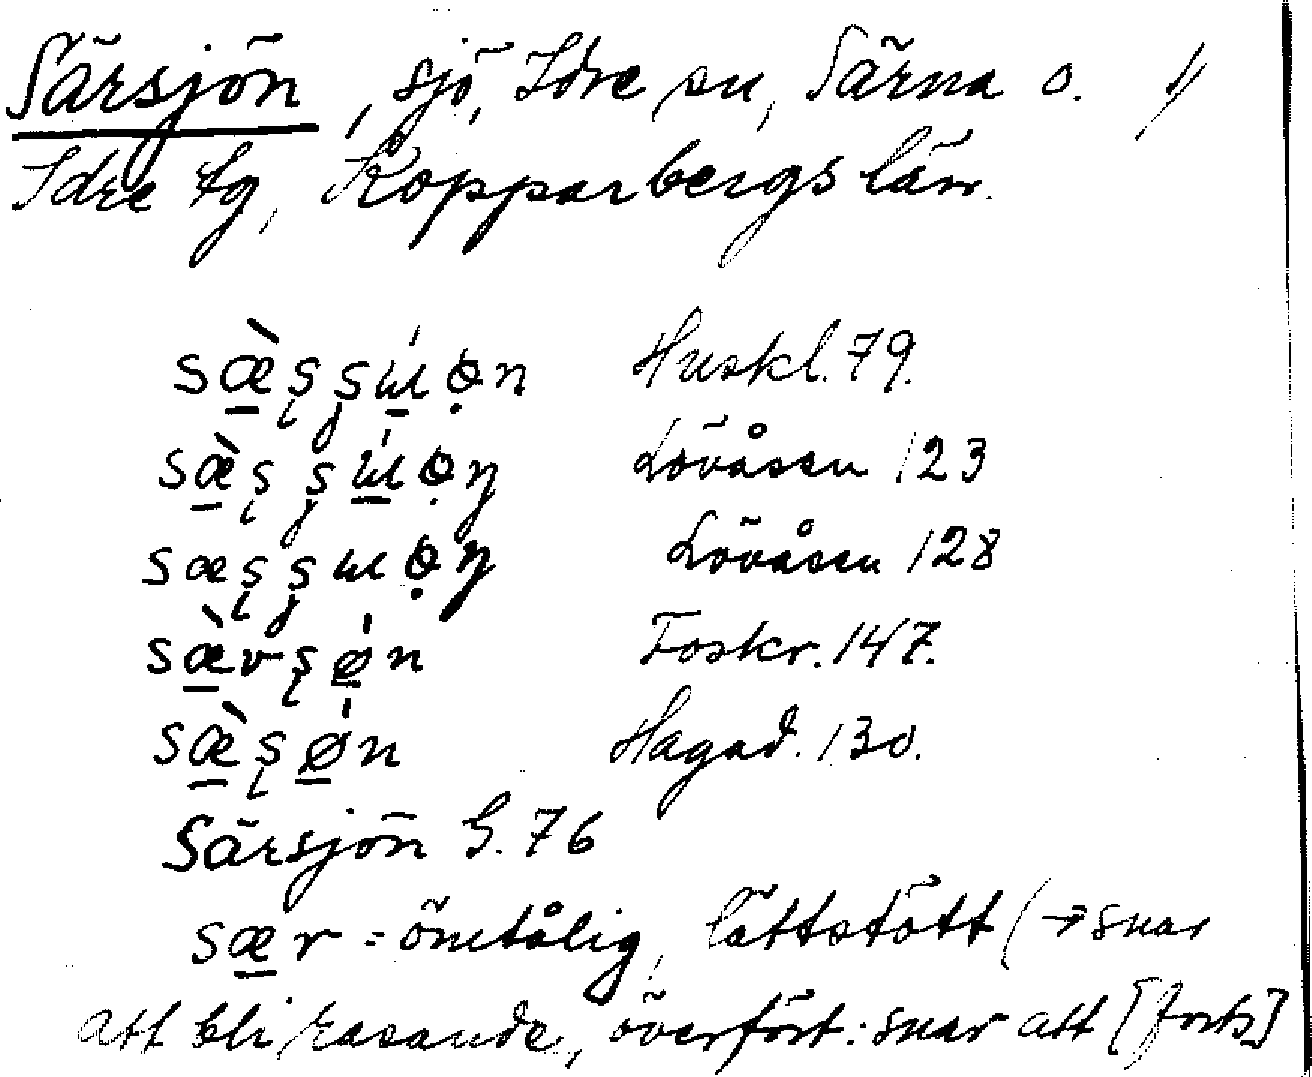 Särsjön, sjö, Idre sn, Särna o. 1/
Idre tg, Kopparbergs län.
Huskl. 79.
Lövåsen 123
Lövåsen 128
Foskr. 147.
Hagad. 130.
Särsjön G. 76
sær = ömtålig, lättstött (→ snar
att bli rasande, överfört: snar att [forts]